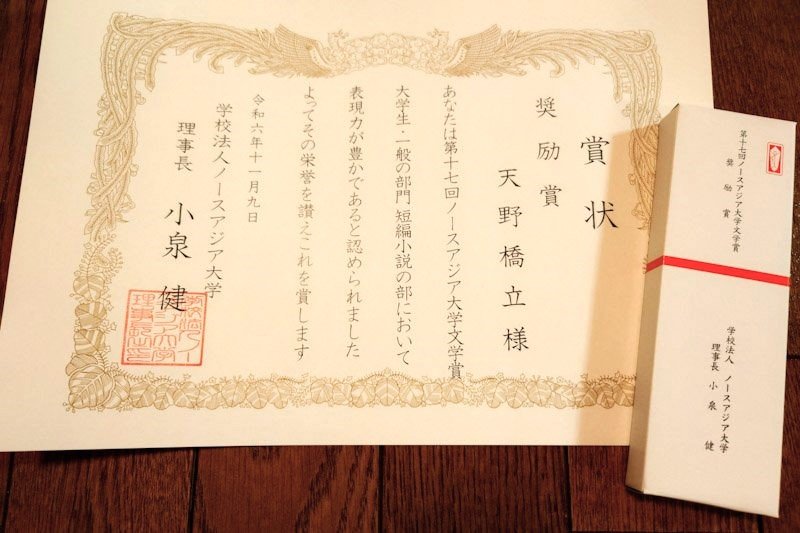 賞状
奨励賞
天野橋立様
あなたは第十七回ノースアジア大学文学賞
大学生・一般の部門 短編小説の部において
表現力が豊かであると認められました
よってその栄誉を讃えこれを賞します
令和六年十一月九日
学校法人ノースアジア大学
理事長 小泉健
第十七回ノースアジア大学文学賞
奨励賞
学校法人 ノースアジア大学
理事長 小泉健